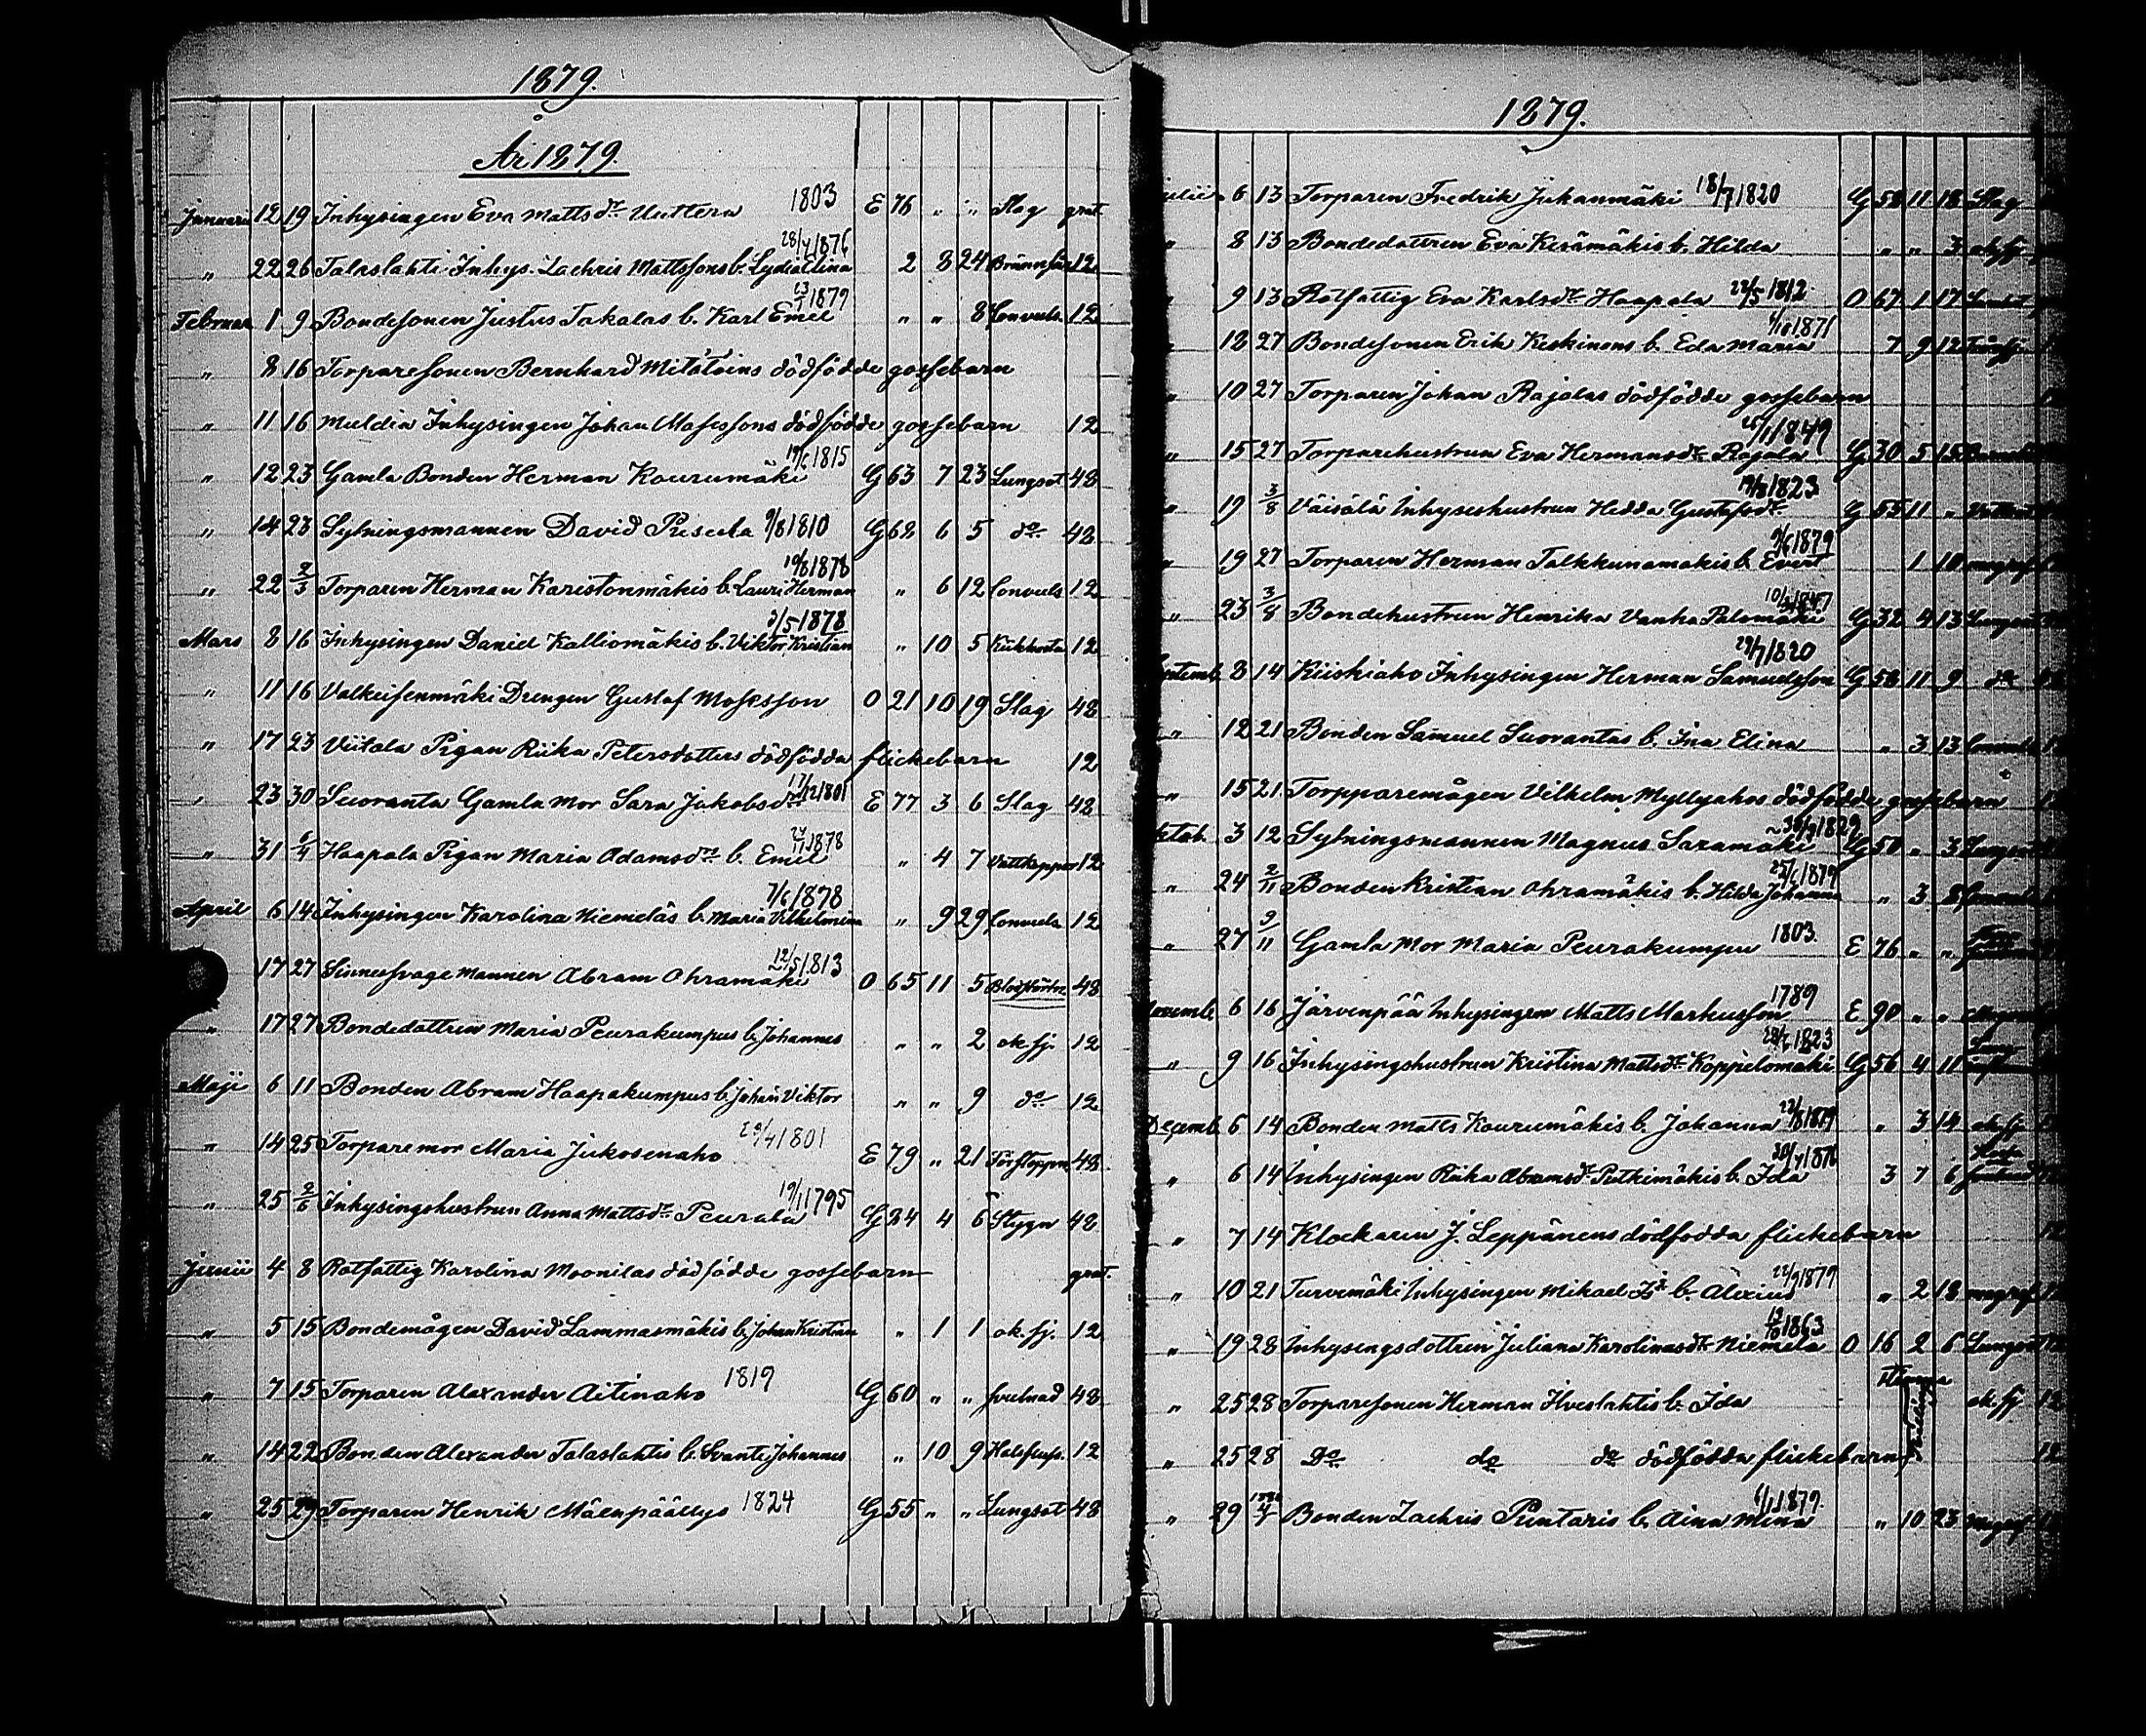 1879.
År 1879.
Januarii 12 19 Inhysingen Eva Mattsdr Unttera 1803 E 76 " " Slag grat.
" 22 26 Talaslahti Inhys. Zachris Mattssons b. Lydia Elina 28/4 1876 2 8 24 12
Februar 1 9 Bondesonen Justus Takalas b. Karl Emil 23/1 1879 " " 8 Convuls. 12
" 8 16 Torparesonen Bernhard Mitätöins dödfödde gossebarn
" 11 16 Muldia Inhysingen Johan Mosessons dödfödde gossebarn 12
" 12 23 Gamla Bonden Herman Kourumäki 19/6 1815 G 63 7 23 Lungsot 48
" 14 23 Sytningsmannen David Peseula 9/8 1810 G 68 6 5 do 48
" 22 2/3 Torparen Herman Karistonmäkis b. Lauri Herman 10/8 1878 " 6 12 Convuls 12
Mars 8 16 Inhysingen Daniel Kalliomäkis b. Viktor Kristian 3/5 1878 " 10 5 Kikhosta 12
" 11 16 Valkeisenmäki Drengen Gustaf Mosesson O 21 10 19 Slag 48
" 17 23 Viitala Pigan Riika Petersdotters dödfödda flickebarn 12
" 23 30 Suoranta Gamla Mor Sara Jakobsdr 17/12 1801 E 77 3 6 Slag 48
" 31 6/4 Haapala Pigan Maria Adamsdrs b. Emil 24/11 1878 " 4 7 Vattkoppor 12
April 6 14 Inhysingen Karolina Niemeläs b. Maria Vilhelmina 7/6 1878 " 9 29 Convuls 12
" 17 27 Sinnessvage mannen Abram Ohramäki 12/5 1813 O 65 11 5 Blodstörtn. 48
" 17 27 Bondedottren Maria Peurakumpus b. Johannes " " 2 ok. sj. 12
Maji 6 11 Bonden Abram Haapakumpus b. Johan Viktor " " 9 do 12
" 14 25 Torparemor Maria Jukosenaho 23/4 1801 E 79 " 21 Förstoppn. 48
" 25 2/6 Inhysingshustrun Anna Mattsdr Peurala 19/1 1795 G 84 4 6 Stygn 48
Junii 4 8 Rotfattig Karolina Moonilas dödfödde gossebarn grat.
" 5 15 Bondemågen David Lammasmäkis b. Johan Kristian " 1 1 ok. sj. 12
" 7 15 Torparen Alexander Aitinaho 1819 G 60 " " svulnad 48
" 14 22 Bonden Alexander Talaslahtis b. Svante Johannes " 10 9 12
" 25 29 Torparen Henrik Mäenpäällys 1824 G 55 " " Lungsot 48
1879.
6 13 Torparen Fredrik Jukanmäki 18/7 1820 G 58 11 18 Slag
" 8 13 Bondedottren Eva Kesämäkis b. Hilda " " 3 ok. sj.
" 9 13 Rotfattig Eva Karlsdr Haapala 22/5 1812 O 67 1 17
12 27 Bondesonen Erik Keskinens b. Eda Maria 1/10 1871 7 9 12
" 10 27 Torparen Johan Rajalas dödfödde gossebarn
" 15 27 Torparehustrun Eva Hermansdr Rajala 26/1 1849 G 30 5 15
" 19 3/8 Väisälä Inhyseshustrun Hedda Gustafsdr 19/8 1823 G 55 11 "
" 19 27 Torparen Herman Talkkunamäkis b. Evert 9/6 1879 1 10
" 23 3/8 Bondehustrun Henrika Vanha Palomäki 10/3 1847 G 32 4 13
Septemb. 8 14 Kiiskiaho Inhysingen Herman Samuelsson 29/7 1820 G 58 11 9 do
" 12 21 Bonden Samuel Suorantas b. Ina Elina " 3 13
" 15 21 Torpparemågen Vilhelm Myllyahos dödfödde gossebarn
Oktob. 3 12 Sytningsmannen Magnus Saramäki 30/9 1829 G 50 " 3
" 24 2/11 Bonden Kristian Ohramäkis b. Hilda Johanna " 3 8
" 27 9/11 Gamla Mor Maria Peurakumpu 1803. E 76 " "
Novemb. 6 16 Järvenpää Inhysingen Matts Markusson 1789 E 90 " "
" 9 16 Inhysingshustrun Kristina Mattsdr Koppelomäki 1823 G 56 4 11
Decemb. 6 14 Bonden Matts Kourumäkis b. Johanna 22/8 1879 " 3 14 ok. sj.
" 6 14 Inhysingen Riika Abramsdr Putkimäkis b. Ida 30/4 1876 3 7 6
" 7 14 Klockaren J. Leppänens dödfödda flickebarn 12
" 10 21 Turvemäki Inhysingen Mikael b. Alexius 22/9 1879 " 2 18
" 19 28 Inhysingsdottren Juliana Karolinasdr Niemelä 13/10 1863 O 16 2 6 Lungsot
" 25 28 Torparesonen Herman Ilveslahtis b. Ida ok. sj. 12
" 25 28 Do do do dödfödda flickebarn 12
" 29 1880 4/1 Bonden Zachris Puntaris b. Aina Mina 6/1 1879. " 10 23